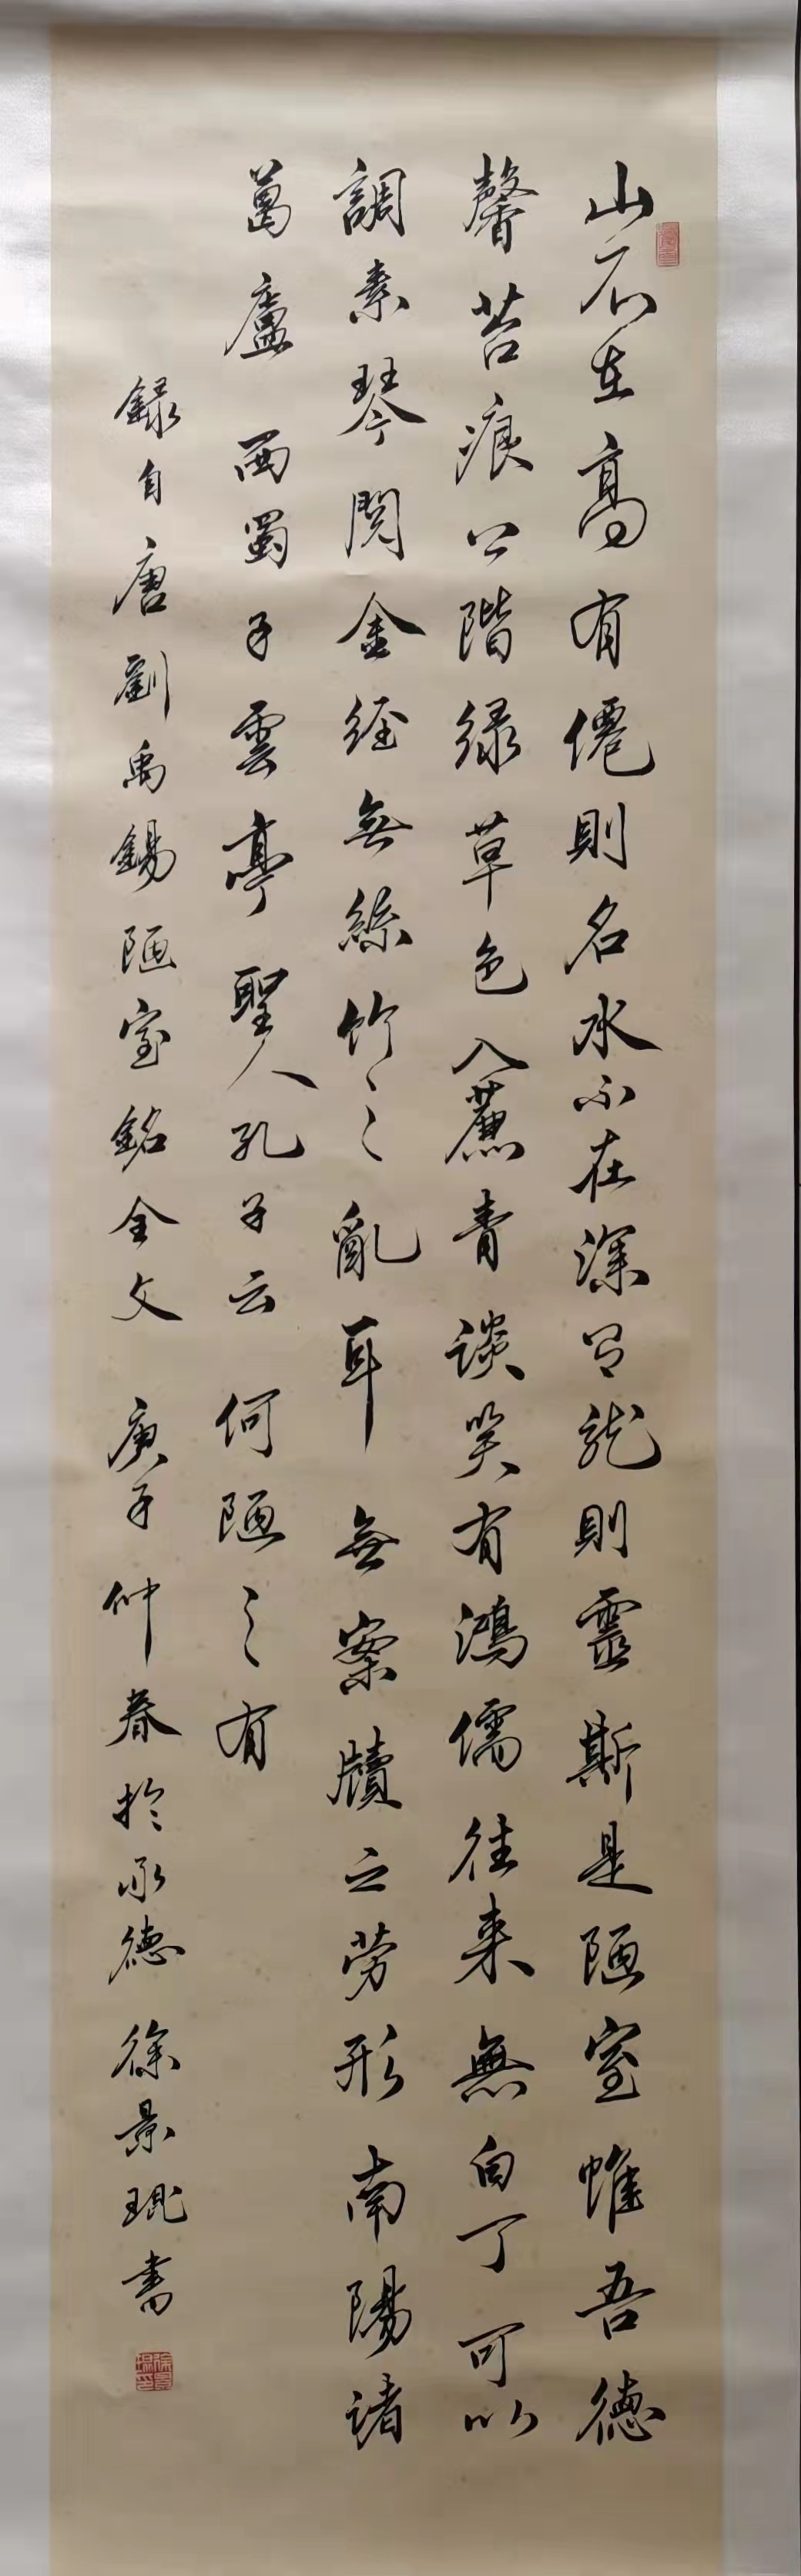 山不在高有僊則名水不在深有龍則靈斯是陋室惟吾德
馨苔痕上階緑草色入簾青談笑有鴻儒往来無白丁可以
調素琴閲金經無絲竹之亂耳無案牘之勞形南陽諸
葛廬西蜀子雲亭聖人孔子云何陋之有
録自唐劉禹錫陋室銘全文 庚子仲春於承德 徐景琨書